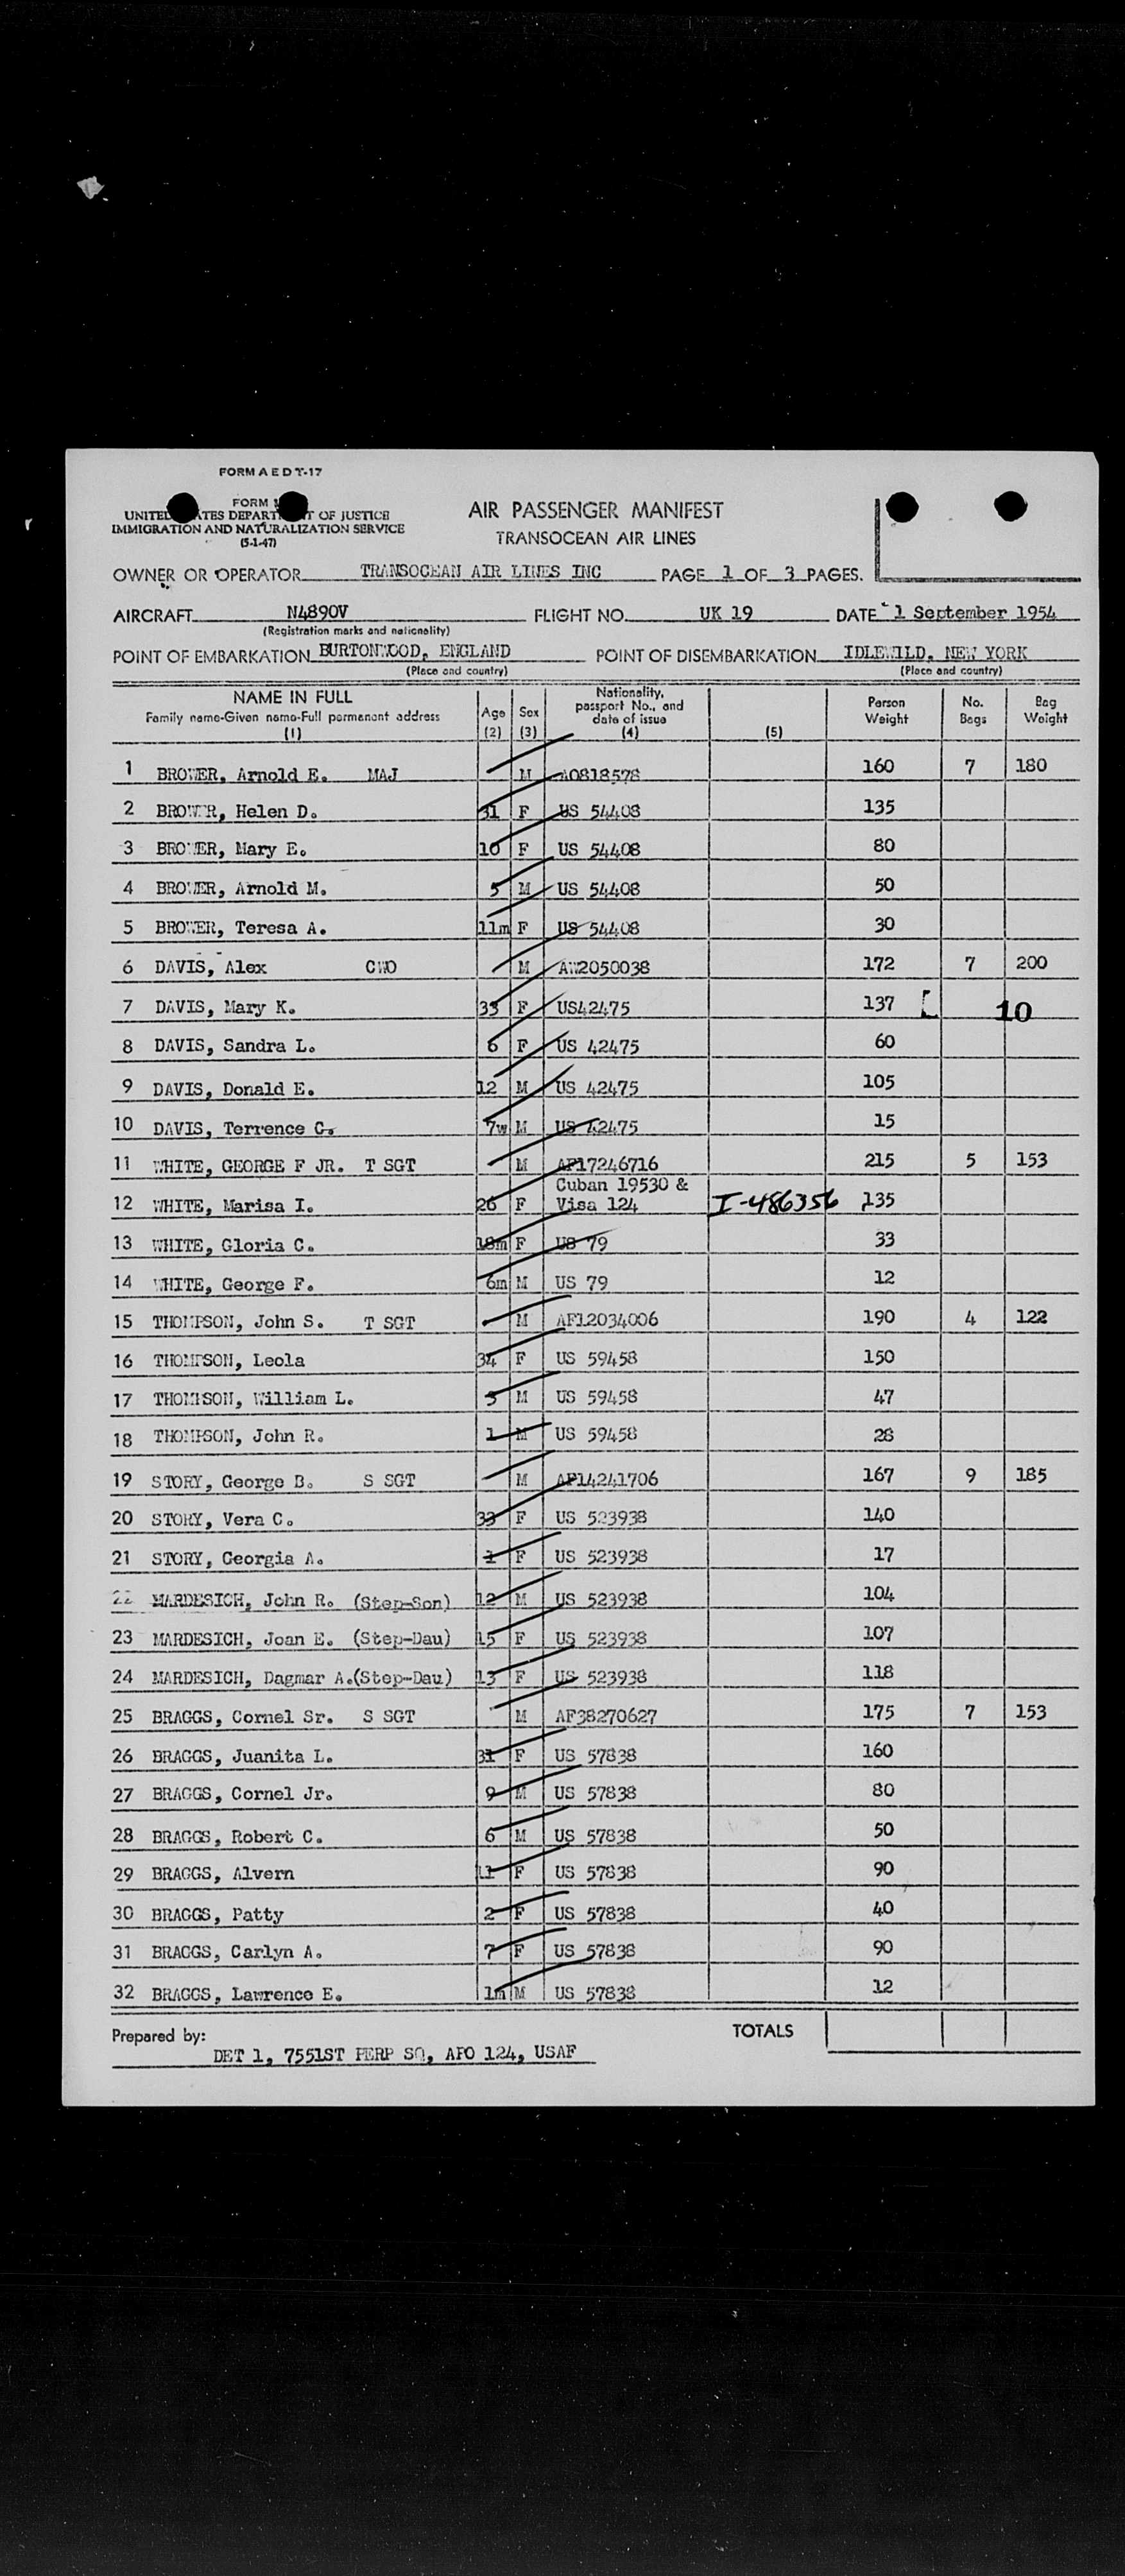 FORM A E D T-17
FORM
UNITED STATES DEPARTMENT OF JUSTICE
IMMIGRATION AND NATURALIZATION SERVICE
(5-1-47)
AIR PASSENGER MANIFEST
TRANSOCEAN AIR LINES
OWNER OR OPERATOR TRANSOCEAN AIR LINES INC PAGE 1 OF 3 PAGES.
AIRCRAFT N4890V FLIGHT NO. UK 19 DATE 1 September 1954
(Registration marks and nationality)
POINT OF EMBARKATION BURTONWOOD, ENGLAND POINT OF DISEMBARKATION IDLEWILD, NEW YORK
(Place and country) (Place and country)
NAME IN FULL Family name-Given name-Full permanent address (1) Age (2) Sex (3) Nationality, passport No., and date of issue (4) (5) Person Weight No. Bags Bag Weight
1 BROWER, Arnold E. MAJ M AO818578 160 7 180
2 BROWER, Helen D. 31 F US 54408 135
3 BROWER, Mary E. 10 F US 54408 80
4 BROWER, Arnold M. 5 M US 54408 50
5 BROWER, Teresa A. 11m F US 54408 30
6 DAVIS, Alex CWO M AW2050038 172 7 200
7 DAVIS, Mary K. 33 F US42475 137 [ 10
8 DAVIS, Sandra L. 6 F US 42475 60
9 DAVIS, Donald E. 12 M US 42475 105
10 DAVIS, Terrence G. 7w M US 42475 15
11 WHITE, GEORGE F JR. T SGT M AF17246716 215 5 153
12 WHITE, Marisa I. 26 F Cuban 19530 & Visa 124 I-486356 135
13 WHITE, Gloria C. 18m F US 79 33
14 WHITE, George F. 6m M US 79 12
15 THOMPSON, John S. T SGT M AF12034006 190 4 122
16 THOMPSON, Leola 34 F US 59458 150
17 THOMPSON, William L. 3 M US 59458 47
18 THOMPSON, John R. 1 M US 59458 28
19 STORY, George B. S SGT M AF14241706 167 9 185
20 STORY, Vera C. 33 F US 523938 140
21 STORY, Georgia A. 1 F US 523938 17
22 MARDESICH, John R. (Step-Son) 12 M US 523938 104
23 MARDESICH, Joan E. (Step-Dau) 15 F US 523938 107
24 MARDESICH, Dagmar A.(Step-Dau) 13 F US 523938 118
25 BRAGGS, Cornel Sr. S SGT M AF38270627 175 7 153
26 BRAGGS, Juanita L. 31 F US 57838 160
27 BRAGGS, Cornel Jr. 9 M US 57838 80
28 BRAGGS, Robert C. 6 M US 57838 50
29 BRAGGS, Alvern 11 F US 57838 90
30 BRAGGS, Patty 2 F US 57838 40
31 BRAGGS, Carlyn A. 7 F US 57838 90
32 BRAGGS, Lawrence E. 1m M US 57838 12
Prepared by: TOTALS
DET 1, 7551ST PERP SQ, APO 124, USAF